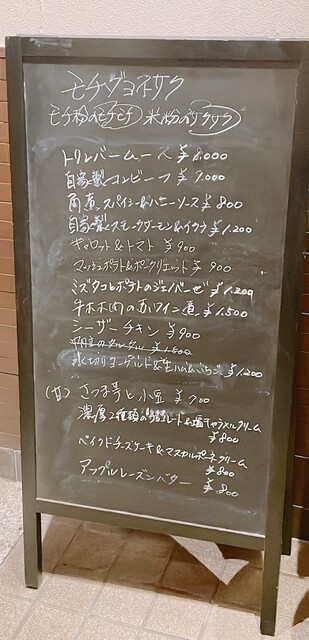 モチヂョネサク
モチ粉のモチモチ 米粉のサクサク
トリレバームース ¥1,000
自家製コンビーフ ¥1,000
角煮、スパイシー&ハニーソース ¥800
自家製スモークサーモン&イクラ ¥1,200
キャロット&トマト ¥900
マッシュポテト&ポークリエット ¥900
ミズタコとポテトのジェノベーゼ ¥1,200
牛ホホ肉の赤ワイン煮 ¥1,500
シーザーチキン ¥900
水切りヨーグルト&生ハムいちご ¥1,200
(甘) さつま芋と小豆 ¥700
濃厚2種類の チョコレート&塩キャラメルクリーム
¥800
ベイクドチーズケーキ&マスカルポーネクリーム
¥800
アップルレーズンバター
¥800